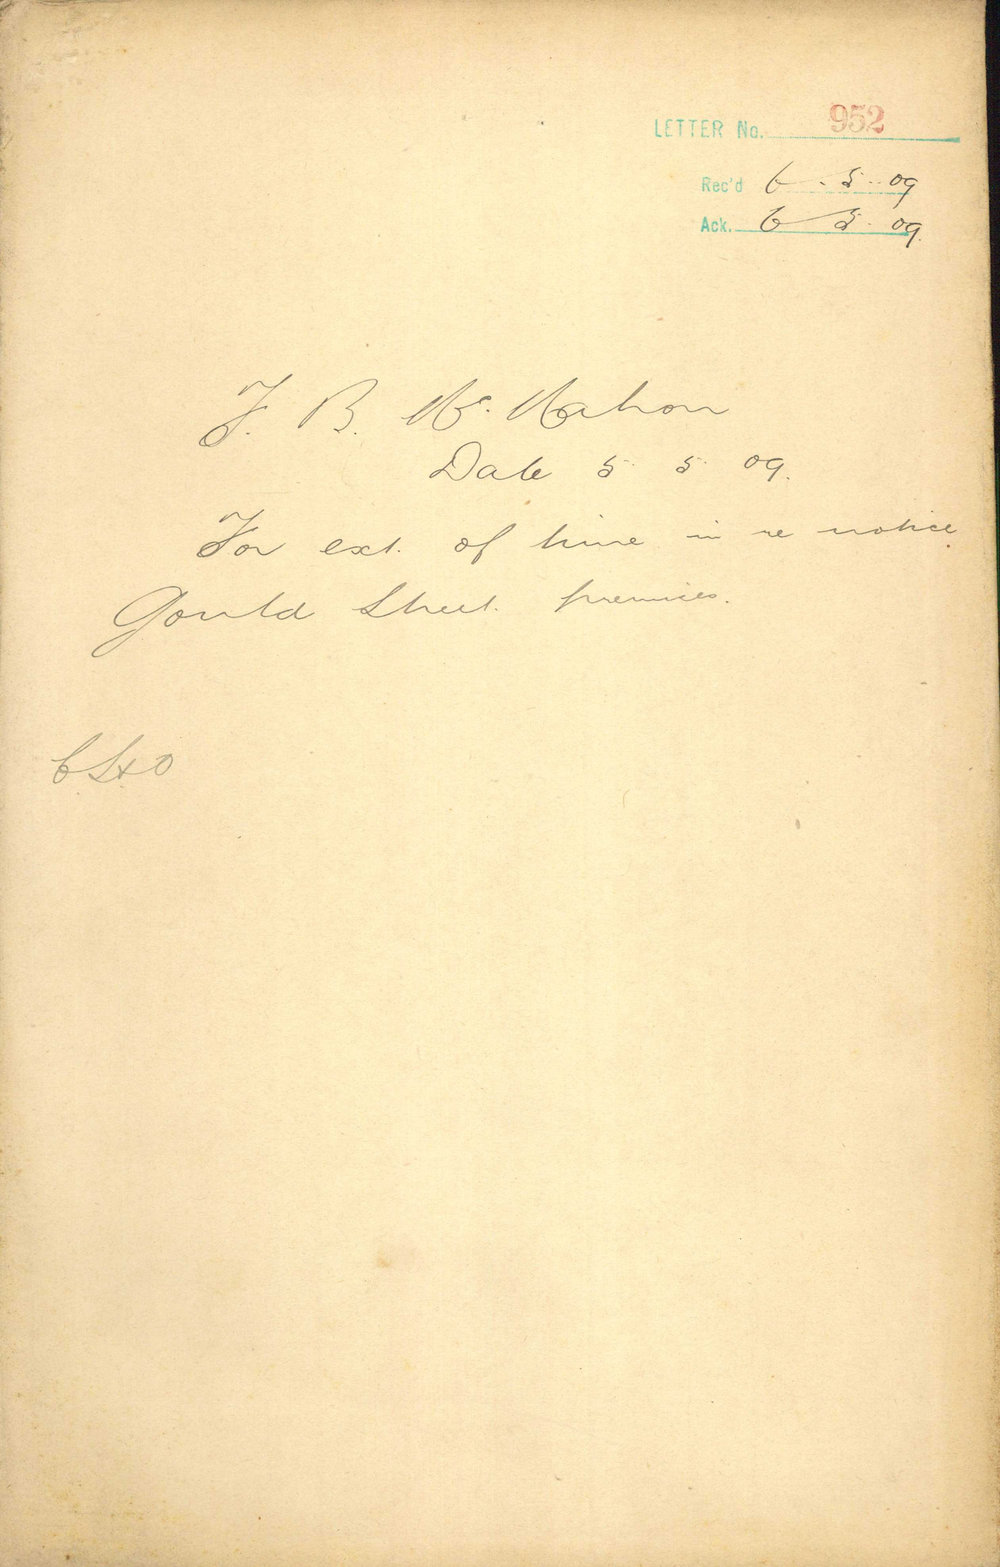 LETTER No. 952
Rec'd 6 - 5 - 09
Ack. 6 5 09.
F. B. McMahon
Date 5 5 09.
For ext. of time in re notice.
Gould Street premises.